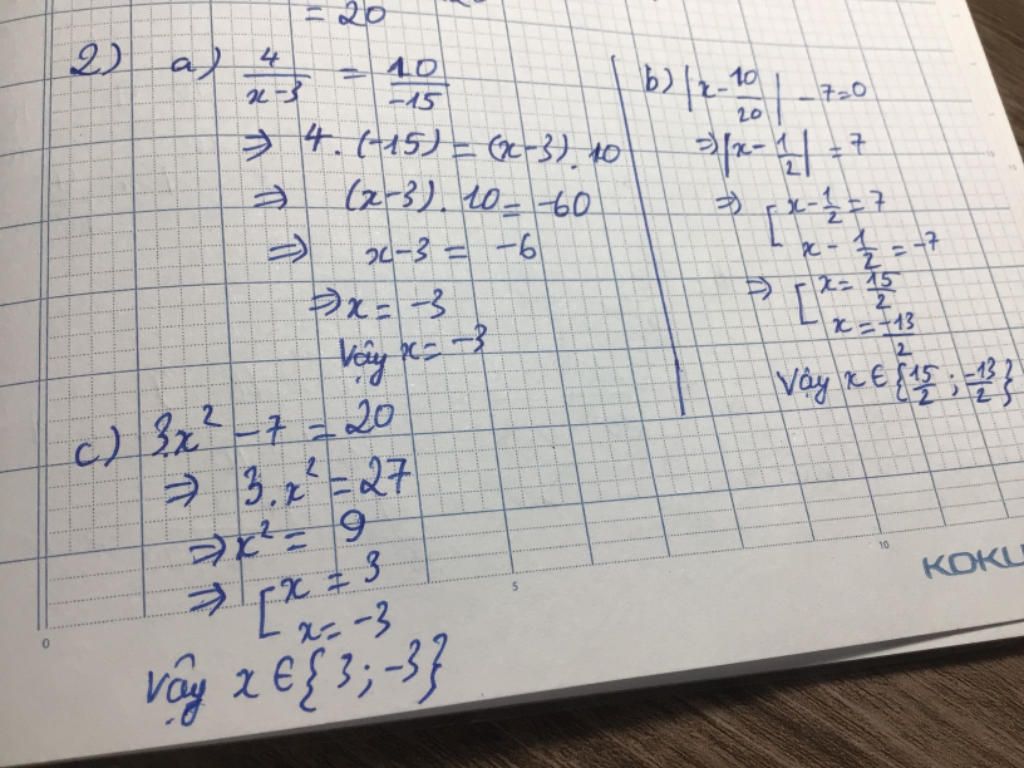 = 20
2) a) 4/(x-3) = 10/-15
⇒ 4.(-15) = (x-3).10
⇒ (x-3).10 = -60
⇒ x-3 = -6
⇒ x = -3
Vậy x = -3
b) |x - 10/20| - 7=0
⇒ |x - 1/2| = 7
⇒ [ x - 1/2 = 7
x - 1/2 = -7
⇒ [ x = 15/2
x = -13/2
Vậy x ∈ {15/2 ; -13/2}
c) 3x² - 7 = 20
⇒ 3.x² = 27
⇒ x² = 9
⇒ [ x = 3
x = -3
Vậy x ∈ {3; -3}
0 5 10
KOKU